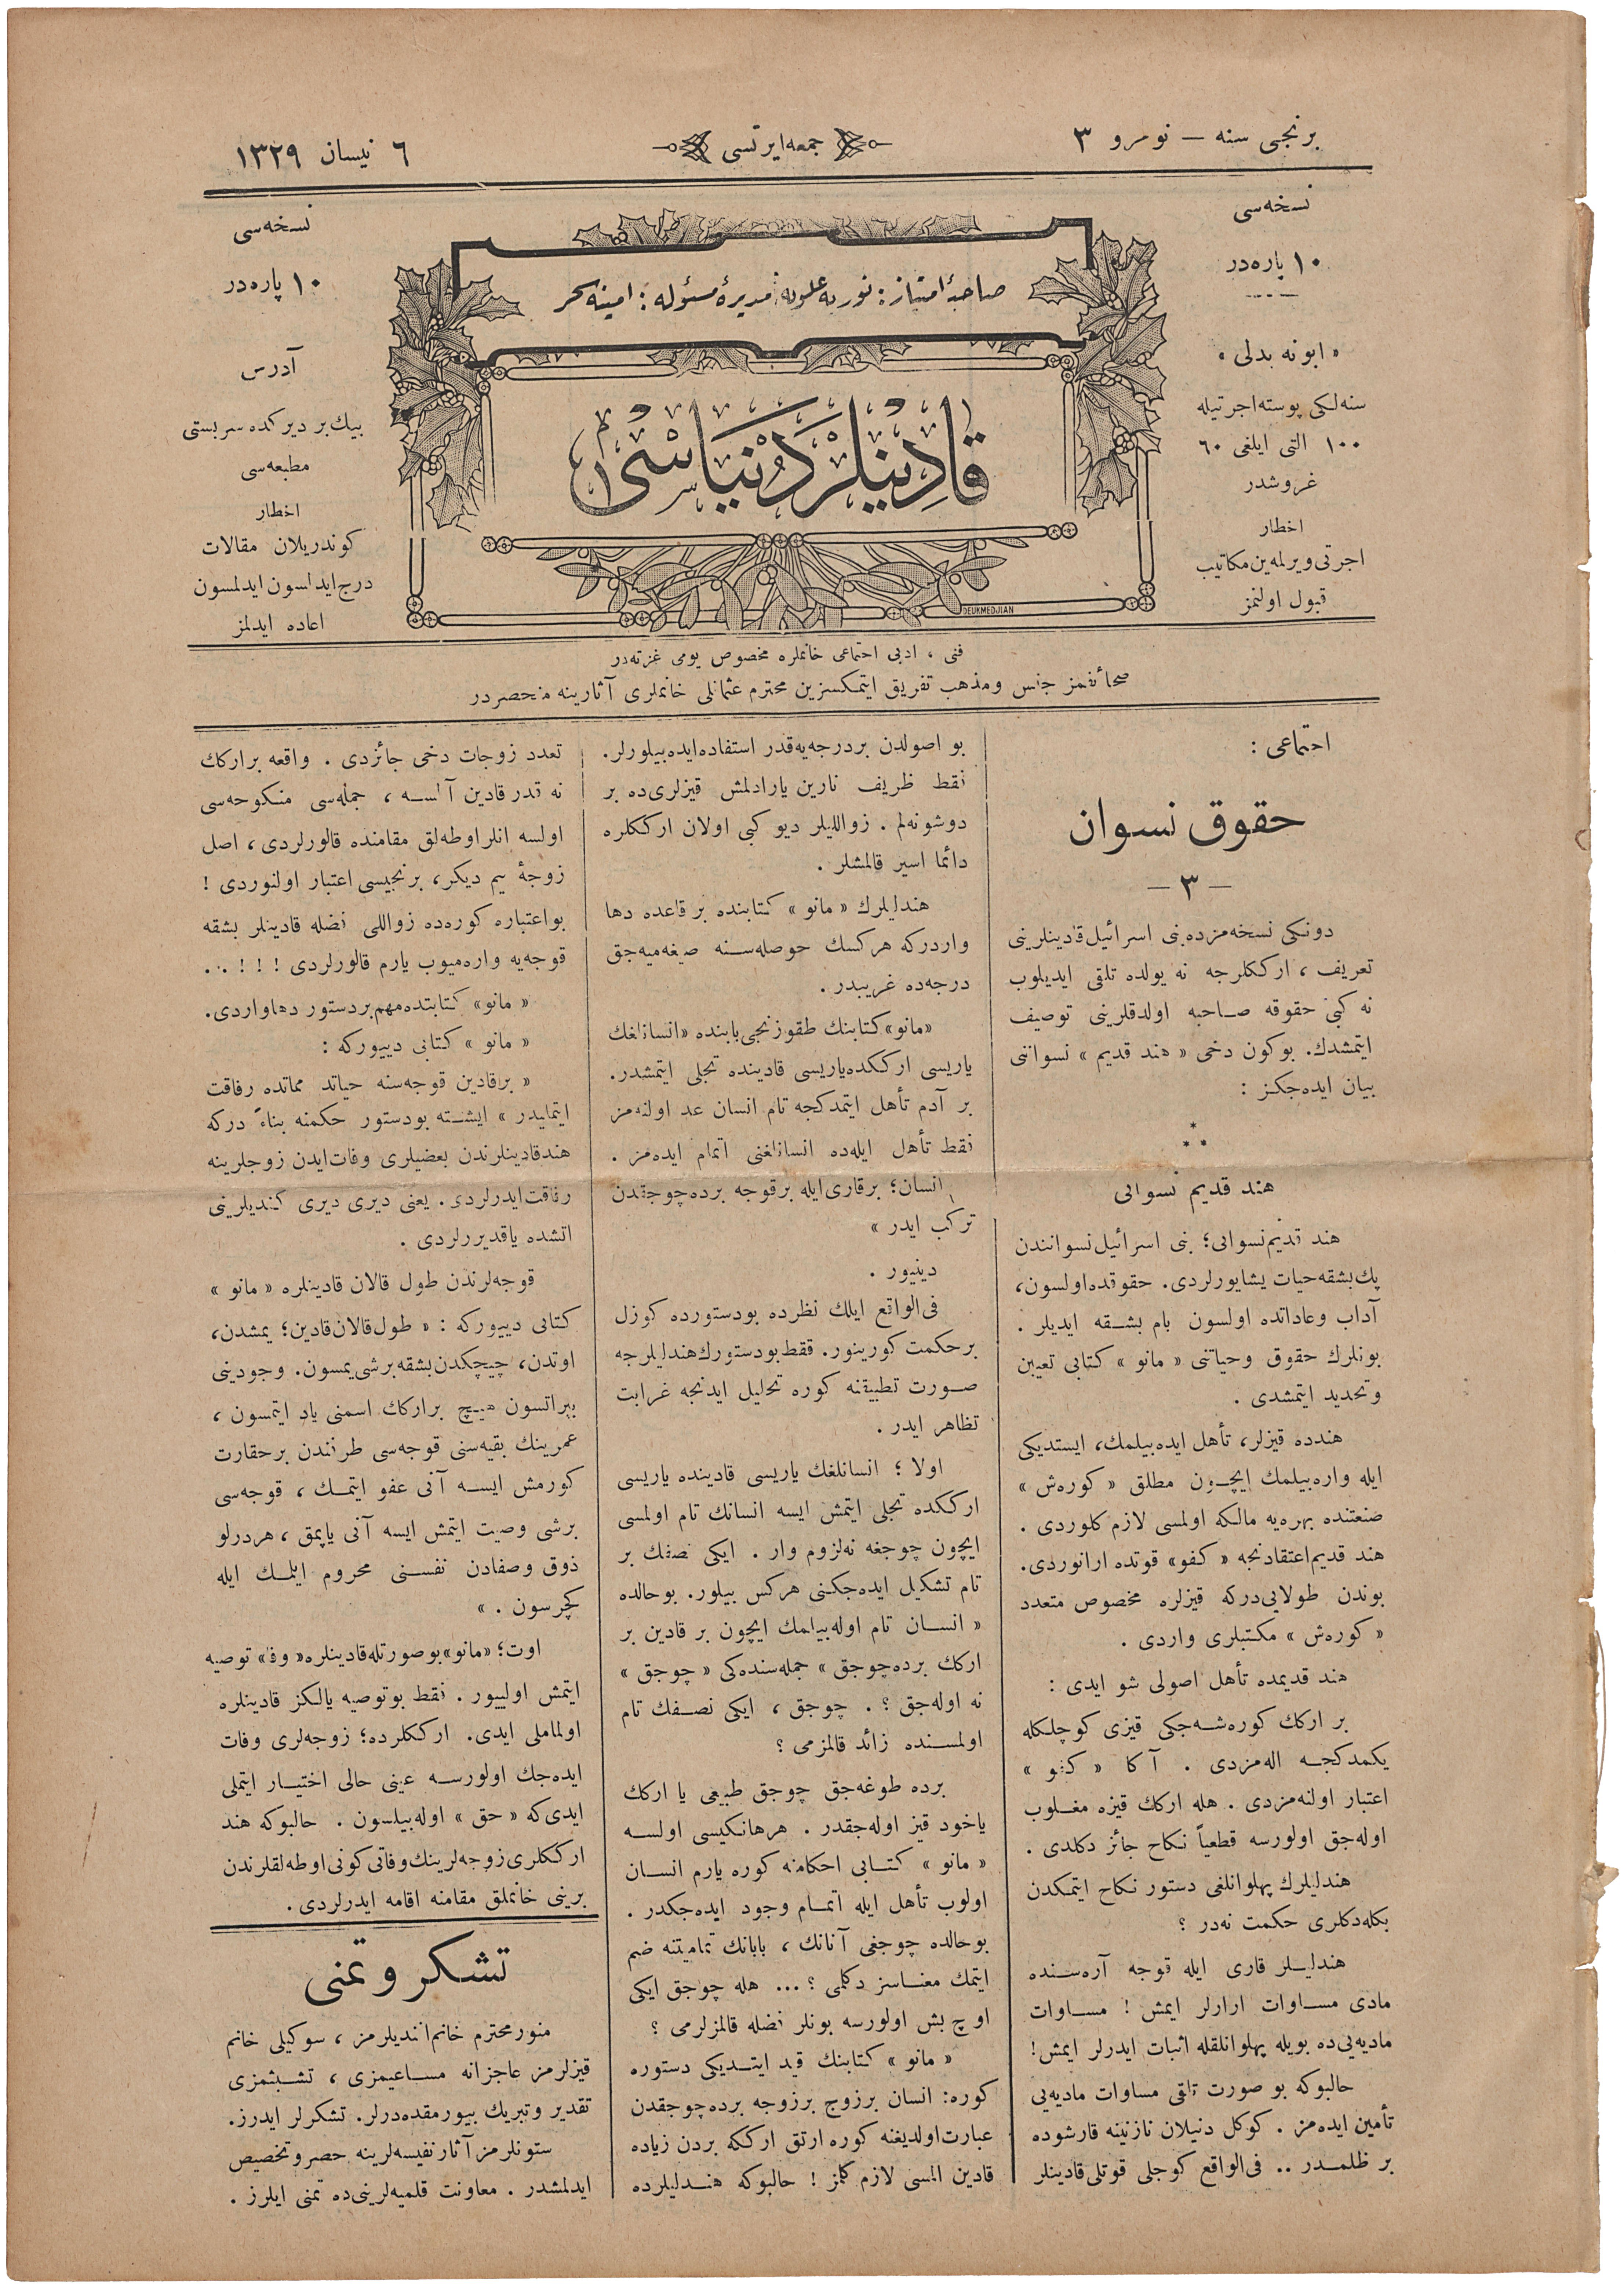 برنجی سنه — نومرو ٣
جمعه ایرتسی
٦ نیسان ١٣٢٩
نسخه‌سی
١٠ پاره‌در
« ابونه بدلی »
سنه‌لكی پوسته اجرتیله
١٠٠ التی ایلغی ٦٠
غروشدر
اخطار
اجرتی ویرلمه‌ین مكاتیب
قبول اولنمز
صاحبهٔ امتیاز : نوریه علویه ؛ مدیرهٔ مسئوله : امینه سحر
قادینلر دنیاسی
DEUKMEDJIAN
نسخه‌سی
١٠ پاره‌در
آدرس
بیك بر دیركده سربستی
مطبعه‌سی
اخطار
كوندریلان مقالات
درج ایدلسون ایدلمسون
اعاده ایدلمز
فنی ، ادبی اجتماعی خانملره مخصوص یومی غزته‌در
صحائفمز جنس ومذهب تفریق ایتمكسزین محترم عثمانلی خانملری آثارینه منحصردر
اجتماعی :
حقوق نسوان
— ٣ —
دونكی نسخه‌مزده بنی اسرائیل قادینلرینی
تعریف ، ارككلرجه نه یولده تلقی ایدیلوب
نه كبی حقوقه صاحبه اولدقلرینی توصیف
ایتمشدك. بوكون دخی « هند قدیم » نسواننی
بیان ایده‌جكز :
* * *
هند قدیم نسوانی
هند قدیم نسوانی؛ بنی اسرائیل نسوانندن
پك بشقه حیات یشایورلردی. حقوقده اولسون،
آداب وعاداتده اولسون بام بشقه ایدیلر .
بونلرك حقوق وحیاتنی « مانو » كتابی تعیین
وتحدید ایتمشدی .
هندده قیزلر، تأهل ایده‌بیلمك، ایستدیكی
ایله واره‌بیلمك ایچون مطلق « كوره‌ش »
صنعتنده بهره‌یه مالكه اولمسی لازم كلوردی .
هند قدیم اعتقادنجه « كفو » قوتده ارانوردی.
بوندن طولایی‌دركه قیزلره مخصوص متعدد
« كوره‌ش » مكتبلری واردی .
هند قدیمده تأهل اصولی شو ایدی :
بر اركك كوره‌شه‌جكی قیزی كوچلكله
یكمدكجه اله‌مزدی . آكا « كفو »
اعتبار اولنه‌مزدی . هله اركك قیزه مغلوب
اوله‌جق اولورسه قطعیاً نكاح جائز دكلدی .
هندلیلرك پهلوانلغی دستور نكاح ایتمكدن
بكله‌دكلری حكمت نه‌در ؟
هندلیلر قاری ایله قوجه آره‌سنده
مادی مساوات ارارلر ایمش ! مساوات
مادیه‌یی‌ده بویله پهلوانلقله اثبات ایدرلر ایمش!
حالبوكه بو صورت تلقی مساوات مادیه‌یی
تأمین ایده‌مز . كوكل دنیلان نازنینه قارشوده
بر ظلمدر .. فی‌الواقع كوجلی قوتلی قادینلر
بو اصولدن بردرجه‌یه قدر استفاده ایده‌بیلورلر.
فقط ظریف نارین یارادلمش قیزلری‌ده بر
دوشونه‌لم . زواللیلر دیو كبی اولان ارككلره
دائما اسیر قالمشلر .
هندلیلرك « مانو » كتابنده بر قاعده دها
واردركه هركسك حوصله‌سنه صیغه‌میه‌جق
درجه‌ده غریبدر .
«مانو» كتابنك طقوزنجی بابنده «انسانلغك
یاریسی ارككده یاریسی قادینده تجلی ایتمشدر.
بر آدم تأهل ایتمدكجه تام انسان عد اولنه‌مز
فقط تأهل ایله‌ده انسانلغنی اتمام ایده‌مز .
انسان؛ برقاری ایله برقوجه برده چوجقدن
تركب ایدر »
دینیور .
فی‌الواقع ایلك نظرده بودستورده كوزل
برحكمت كورینور. فقط بودستورك هندلیلرجه
صورت تطبیقنه كوره تحلیل ایدنجه غرابت
تظاهر ایدر .
اولا ؛ انسانلغك یاریسی قادینده یاریسی
ارككده تجلی ایتمش ایسه انسانك تام اولمسی
ایچون چوجغه نه‌لزوم وار . ایكی نصفك بر
تام تشكیل ایده‌جكنی هركس بیلور. بوحالده
« انسان تام اوله‌بیلمك ایچون بر قادین بر
اركك برده چوجق » جمله‌سنده‌كی « چوجق »
نه اوله‌جق ؟ . چوجق ، ایكی نصفك تام
اولمسنده زائد قالمزمی ؟
برده طوغه‌جق چوجق طبیعی یا اركك
یاخود قیز اوله‌جقدر . هرهانكیسی اولسه
« مانو » كتابی احكامنه كوره یارم انسان
اولوب تأهل ایله اتمام وجود ایده‌جكدر .
بوحالده چوجغی آنانك ، بابانك تمامیتنه ضم
ایتمك معناسز دكلمی ؟ ... هله چوجق ایكی
اوچ بش اولورسه بونلر فضله قالمزلرمی ؟
« مانو » كتابنك قید ایتدیكی دستوره
كوره: انسان برزوج برزوجه برده چوجقدن
عبارت اولدیغنه كوره ارتق ارككه بردن زیاده
قادین المسی لازم كلمز ! حالبوكه هندلیلرده
تعدد زوجات دخی جائزدی . واقعه براركك
نه قدر قادین آلسه ، جمله‌سی منكوحه‌سی
اولسه انلر اوطه‌لق مقامنده قالورلردی ، اصل
زوجهٔ یم دیكر، برنجیسی اعتبار اولنوردی !
بواعتباره كوره‌ده زواللی فضله قادینلر بشقه
قوجه‌یه واره‌میوب یارم قالورلردی ! ! ! . .
« مانو » كتابتده مهم بردستور دها واردی.
« مانو » كتابی دییوركه :
« برقادین قوجه‌سنه حیاتد مماتده رفاقت
ایتمایدر » ایشته بودستور حكمنه بناءً دركه
هند قادینلرندن بعضیلری وفات ایدن زوجلرینه
رفاقت ایدرلردی. یعنی دیری دیری كندیلرینی
اتشده یاقدیررلردی .
قوجه‌لرندن طول قالان قادینلره « مانو »
كتابی دییوركه : « طول قالان قادین؛ یمشدن،
اوتدن، چیچكدن بشقه برشی یمسون. وجودینی
ییراتسون هیچ براركك اسمنی یاد ایتمسون ،
عمرینك بقیه‌سنی قوجه‌سی طرفندن برحقارت
كورمش ایسه آنی عفو ایتمك ، قوجه‌سی
برشی وصیت ایتمش ایسه آنی یاپمق ، هردرلو
ذوق وصفادن نفسنی محروم ایلك ایله
كچرسون . »
اوت؛ «مانو» بوصورتله قادینلره «وفا» توصیه
ایتمش اولییور . فقط بوتوصیه یالكز قادینلره
اولماملی ایدی. ارككلرده؛ زوجه‌لری وفات
ایده‌جك اولورسه عینی حالی اختیار ایتملی
ایدی‌كه « حق » اوله‌بیلسون . حالبوكه هند
ارككلری زوجه‌لرینك وفاتی كونی اوطه‌لقلرندن
برینی خانملق مقامنه اقامه ایدرلردی .
تشكر وتمنی
منور محترم خانم افندیلرمز ، سوكیلی خانم
قیزلرمز عاجزانه مساعیمزی ، تشبثمزی
تقدیر وتبریك بیورمقده‌درلر. تشكرلر ایدرز.
ستونلرمز آثار نفیسه‌لرینه حصر وتخصیص
ایدلمشدر . معاونت قلمیه‌لرینی‌ده تمنی ایلرز .